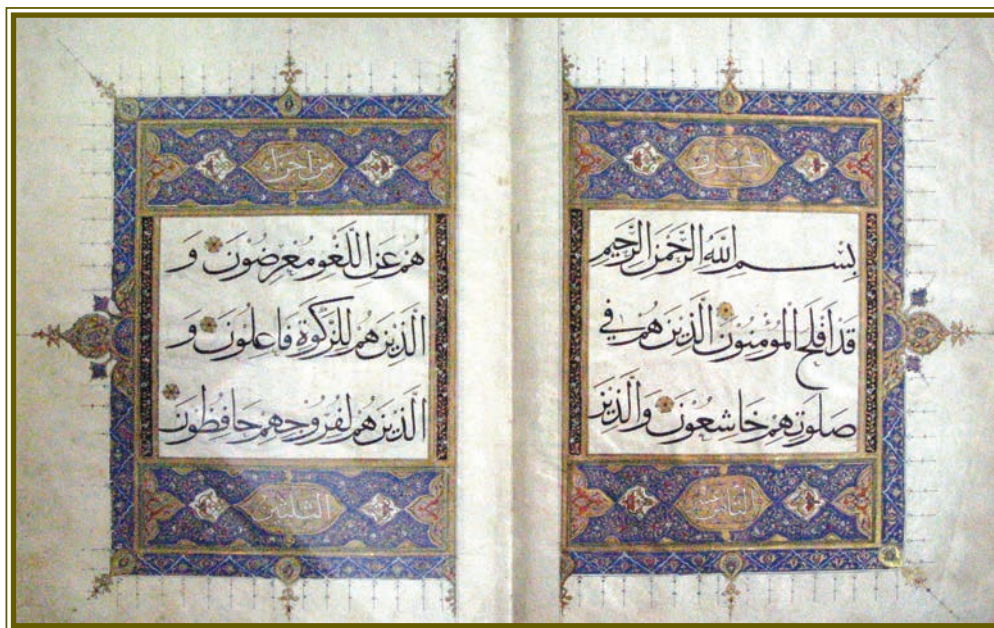 الجزو
بِسْمِ اللَّهِ الرَّحْمَنِ الرَّحِيمِ
قَدْ أَفْلَحَ الْمُؤْمِنُونَ الَّذِينَ هُمْ فِي
صَلَوتِهِمْ خَاشِعُونَ وَالَّذِينَ
الثامن عشر
من اجزاء
هُمْ عَنِ اللَّغْوِ مُعْرِضُونَ وَ
الَّذِينَ هُمْ لِلزَّكَوةِ فَاعِلُونَ وَ
الَّذِينَ هُمْ لِفُرُوجِهِمْ حَافِظُونَ
الثلثين